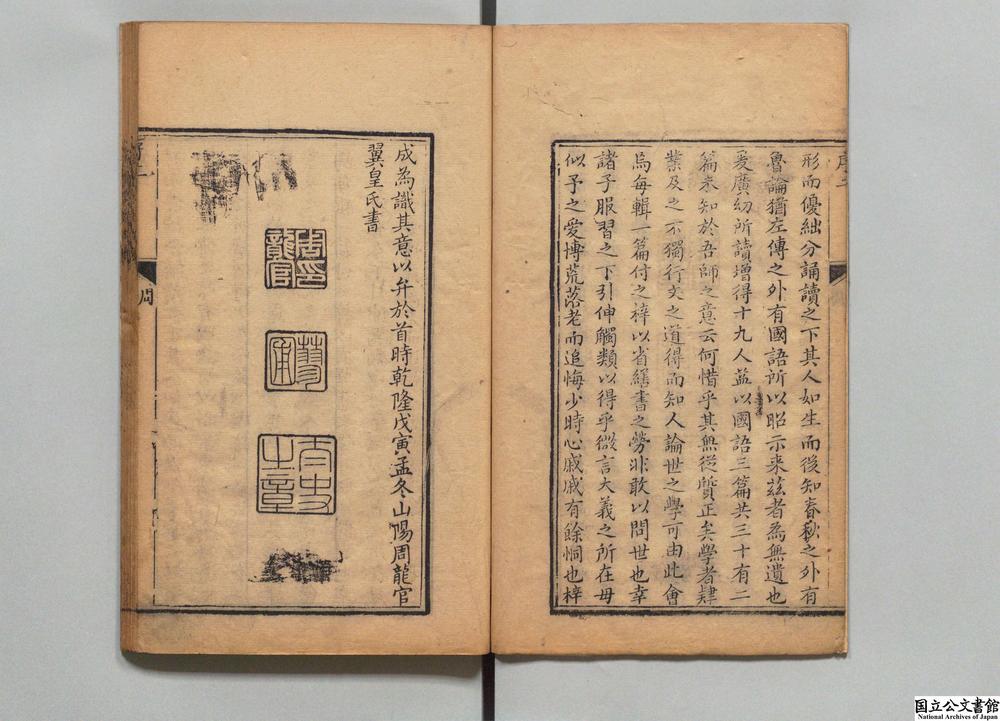 形而優絀分誦讀之下其人如生而後知春秋之外有
魯論猶左傳之外有國語所以昭示来茲者為無遺也
爰廣幼所讀增得十九人益以國語三篇共三十有二
篇未知於吾師之意云何惜乎其無從質正矣學者肄
業及之不獨行文之道得而知人論世之學可由此會
焉每輯一篇付之梓以省繕書之勞非敢以問世也幸
諸子服習之下引伸觸類以得乎微言大義之所在毋
似予之愛博荒落老而追悔少時心戚戚有餘恫也梓
成為識其意以弁於首時乾隆戊寅孟冬山陽周龍官
翼皇氏書
周印龍官
太史之章
周
国立公文書館
National Archives of Japan